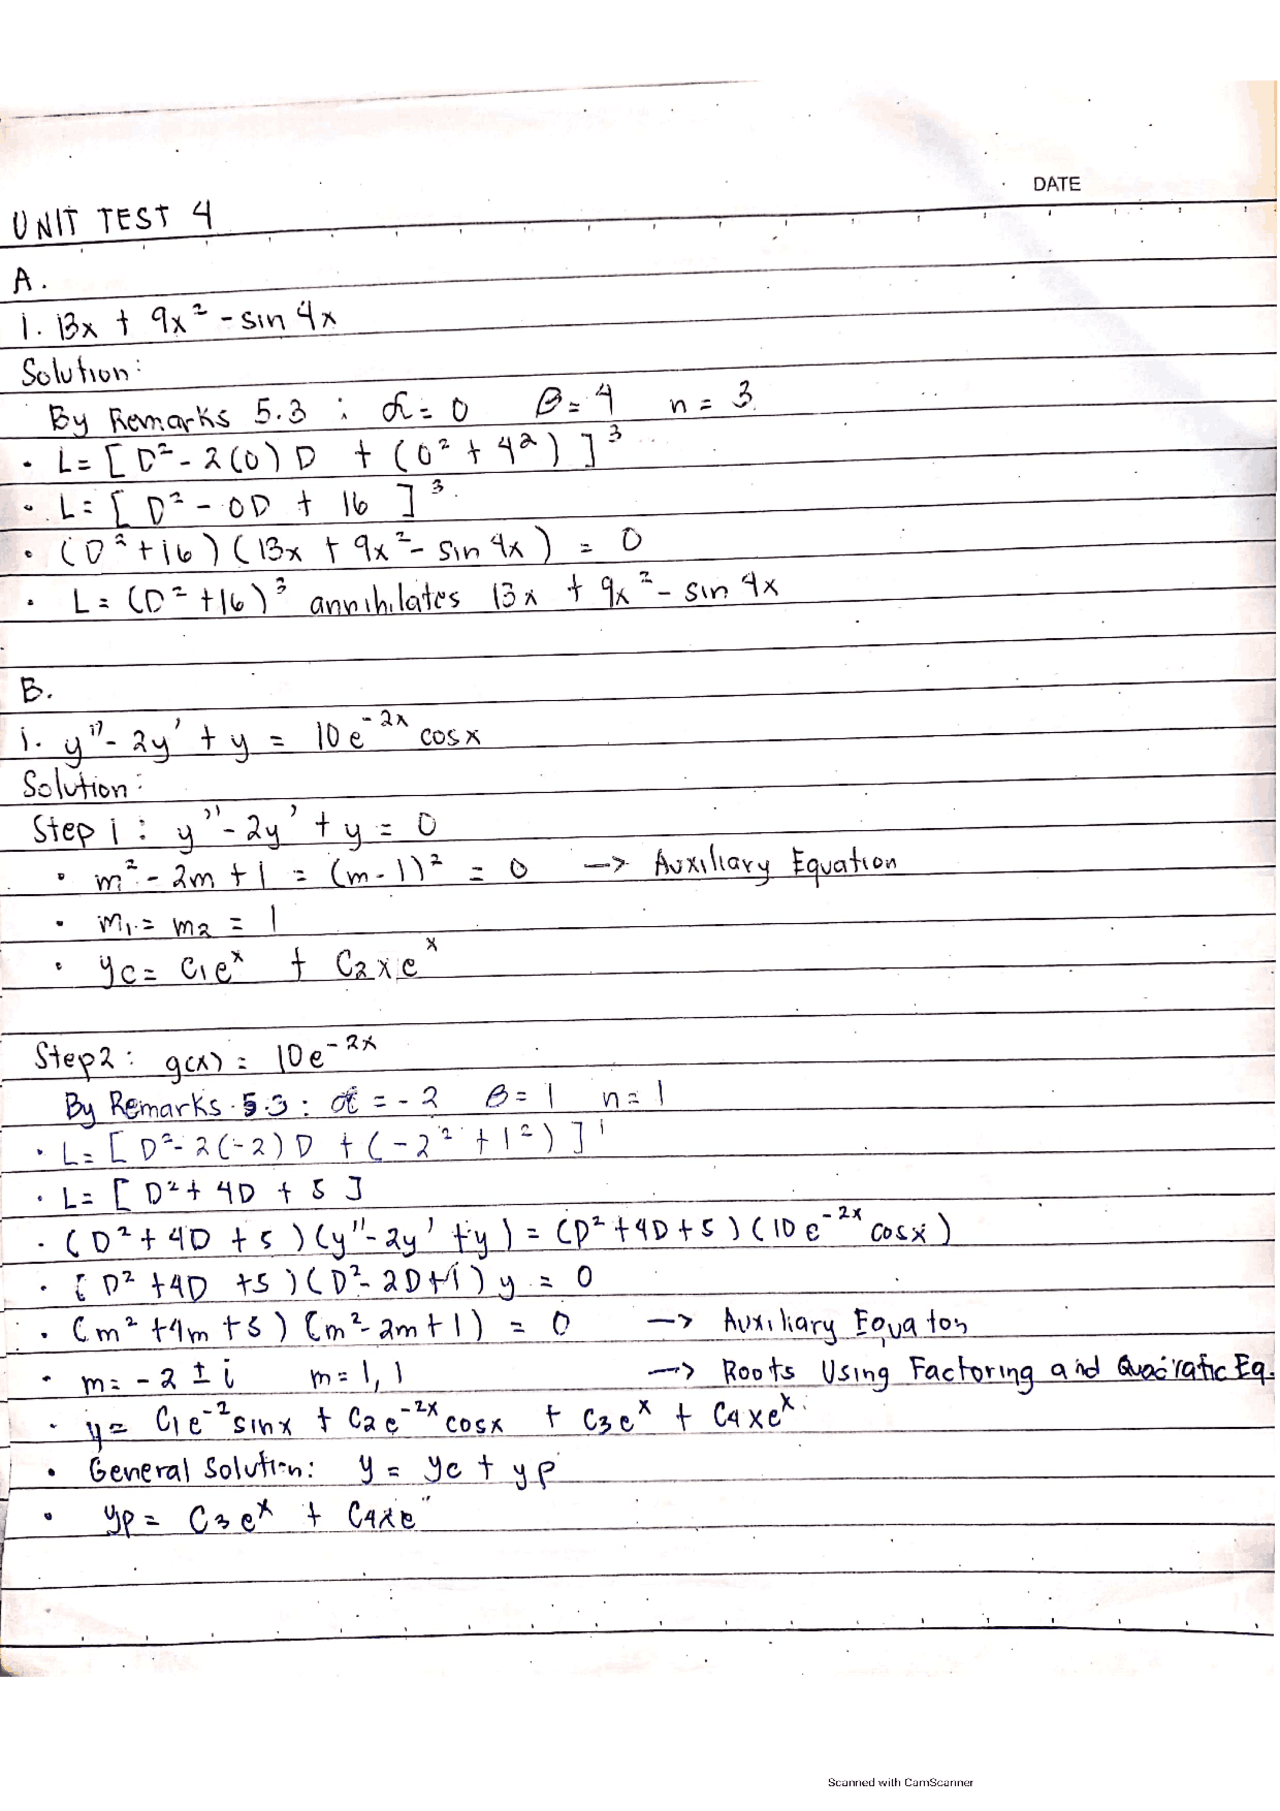 DATE
UNIT TEST 4
A.
1. 13x + 9x² - sin 4x
Solution:
By Remarks 5.3 : α = 0 β = 4 n = 3
• L = [ D² - 2(0) D + (0² + 4²) ]³
• L = [ D² - 0D + 16 ]³
• (D² + 16) (13x + 9x² - sin 4x) = 0
• L = (D² + 16)³ annihilates 13x + 9x² - sin 4x
B.
1. y'' - 2y' + y = 10e⁻²ˣ cosx
Solution:
Step 1 : y'' - 2y' + y = 0
• m² - 2m + 1 = (m - 1)² = 0 → Auxiliary Equation
• m₁ = m₂ = 1
• yc = C₁eˣ + C₂xeˣ
Step 2 : g(x) = 10e⁻²ˣ
By Remarks 5.3 : α = -2 β = 1 n = 1
• L = [ D² - 2(-2) D + (-2² + 1²) ]¹
• L = [ D² + 4D + 5 ]
• (D² + 4D + 5) (y'' - 2y' + y) = (D² + 4D + 5) (10e⁻²ˣ cosx)
• (D² + 4D + 5) (D² - 2D + 1) y = 0
• (m² + 4m + 5) (m² - 2m + 1) = 0 → Auxiliary Equaton
• m = -2 ± i m = 1, 1 → Roots Using Factoring and Quadratic Eq.
• y = C₁e⁻² sinx + C₂e⁻²ˣ cosx + C₃eˣ + C₄xeˣ
• General Solution: y = yc + yp
• yp = C₃eˣ + C₄xe"
Scanned with CamScanner